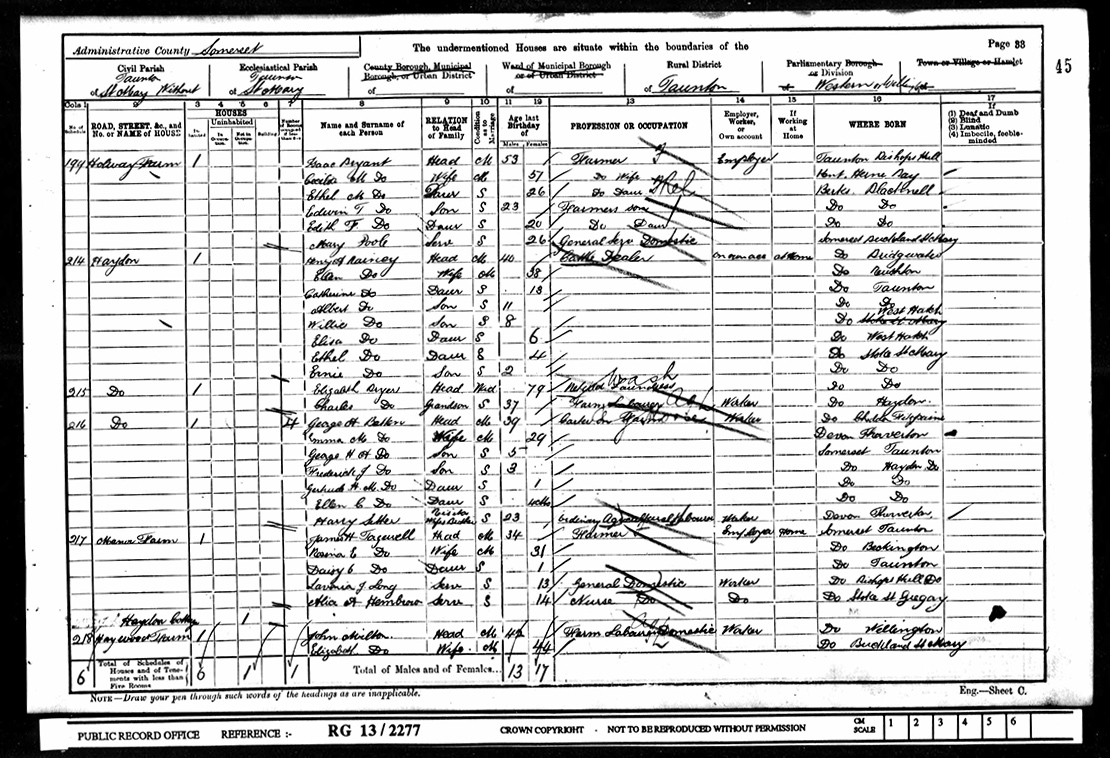 Administrative County Somerset
The undermentioned Houses are situate within the boundaries of the
Page 33
45
Civil Parish
of Taunton St Mary Without
Ecclesiastical Parish
of Taunton St Mary
County Borough, Municipal Borough, or Urban District
of
Ward of Municipal Borough or of Urban District
of
Rural District
of Taunton
Parliamentary Borough or Division
of Western or Wellington
Town or Village or Hamlet
of
Cols. 1 2 3 4 5 6 7 8 9 10 11 12 13 14 15 16 17
No. of Schedule
ROAD, STREET, &c., and No. or NAME of HOUSE
HOUSES
Inhabited
Uninhabited
In Occupation
Not in Occupation
Building
Number of Rooms occupied if less than five
Name and Surname of each Person
RELATION to Head of Family
Condition as to Marriage
Age last Birthday of
Males Females
PROFESSION OR OCCUPATION
Employer, Worker, or Own account
If Working at Home
WHERE BORN
If
(1) Deaf and Dumb
(2) Blind
(3) Lunatic
(4) Imbecile, feeble-minded
Holway Farm 1 Isaac Bryant Head M 53 Farmer Employer Taunton Bishops Hull
Cecilia M Do Wife M 57 Do Wife Kent Herne Bay
Ethel M Do Daur S 26 Do Daur Berks
Edwin T Do Son S 23 Farmers son Do Do
Edith F Do Daur S 20 Do Daur Do Do
Mary Poole Serv S 26 General Serv Domestic Somerset Buckland St Mary
214 Haydon 1 Henry A Rainey Head M 40 Cattle Dealer Own acc at Home Do Bridgwater
Ellen Do Wife M 38 Do
Catherine Do Daur S 13 Do Taunton
Albert Do Son S 11 Do Do
Willie Do Son S 8 Do Stoke St Mary West Hatch
Elisa Do Daur S 6 Do West Hatch
Ethel Do Daur S 4 Do Stoke St Mary
Ernie Do Son S 2 Do Do
215 Do 1 Elizabeth Dyer Head Wid 79 Retired Laundress Wash Do Do
Charles Do Grandson S 37 Farm Labourer Worker Do Haydon
216 Do 1 4 George H Head M 39 Carter on Farm Worker Do
Emma M Do Wife M 29 Devon Thorverton
George H H Do Son S 5 Somerset Taunton
Frederick J Do Son S 3 Do Haydon Do
Gertrude H M Do Daur S 1 Do Do
Ellen C Do Daur S Do Do
Harry Wifes Brother S 23 Ordinary Agricultural Labourer Worker Devon Thorverton
217 Manor Farm 1 James H Tazewell Head M 34 Farmer Employer Home Somerset Taunton
Rosina E Do Wife M 31 Do Beckington
Daisy E Do Daur S 1 Do Taunton
Lavinia J Long Serv S 13 General Domestic Worker Do Bishops Hull Do
Alice A Hembrow Serv S 14 Nurse Do Do Do Stoke St Gregory
Haydon 1
218 Haywood Farm 1 John Milton Head M 42 Farm Labourer Domestic Worker Do Wellington
Elizabeth Do Wife M 44 Do Buckland St Mary
6 Total of Schedules of Houses and of Tenements with less than Five Rooms 6 1 1 Total of Males and of Females... 13 17
NOTE—Draw your pen through such words of the headings as are inapplicable.
Eng.—Sheet C.
PUBLIC RECORD OFFICE REFERENCE :- RG 13/2277 CROWN COPYRIGHT - NOT TO BE REPRODUCED WITHOUT PERMISSION CM SCALE 1 2 3 4 5 6